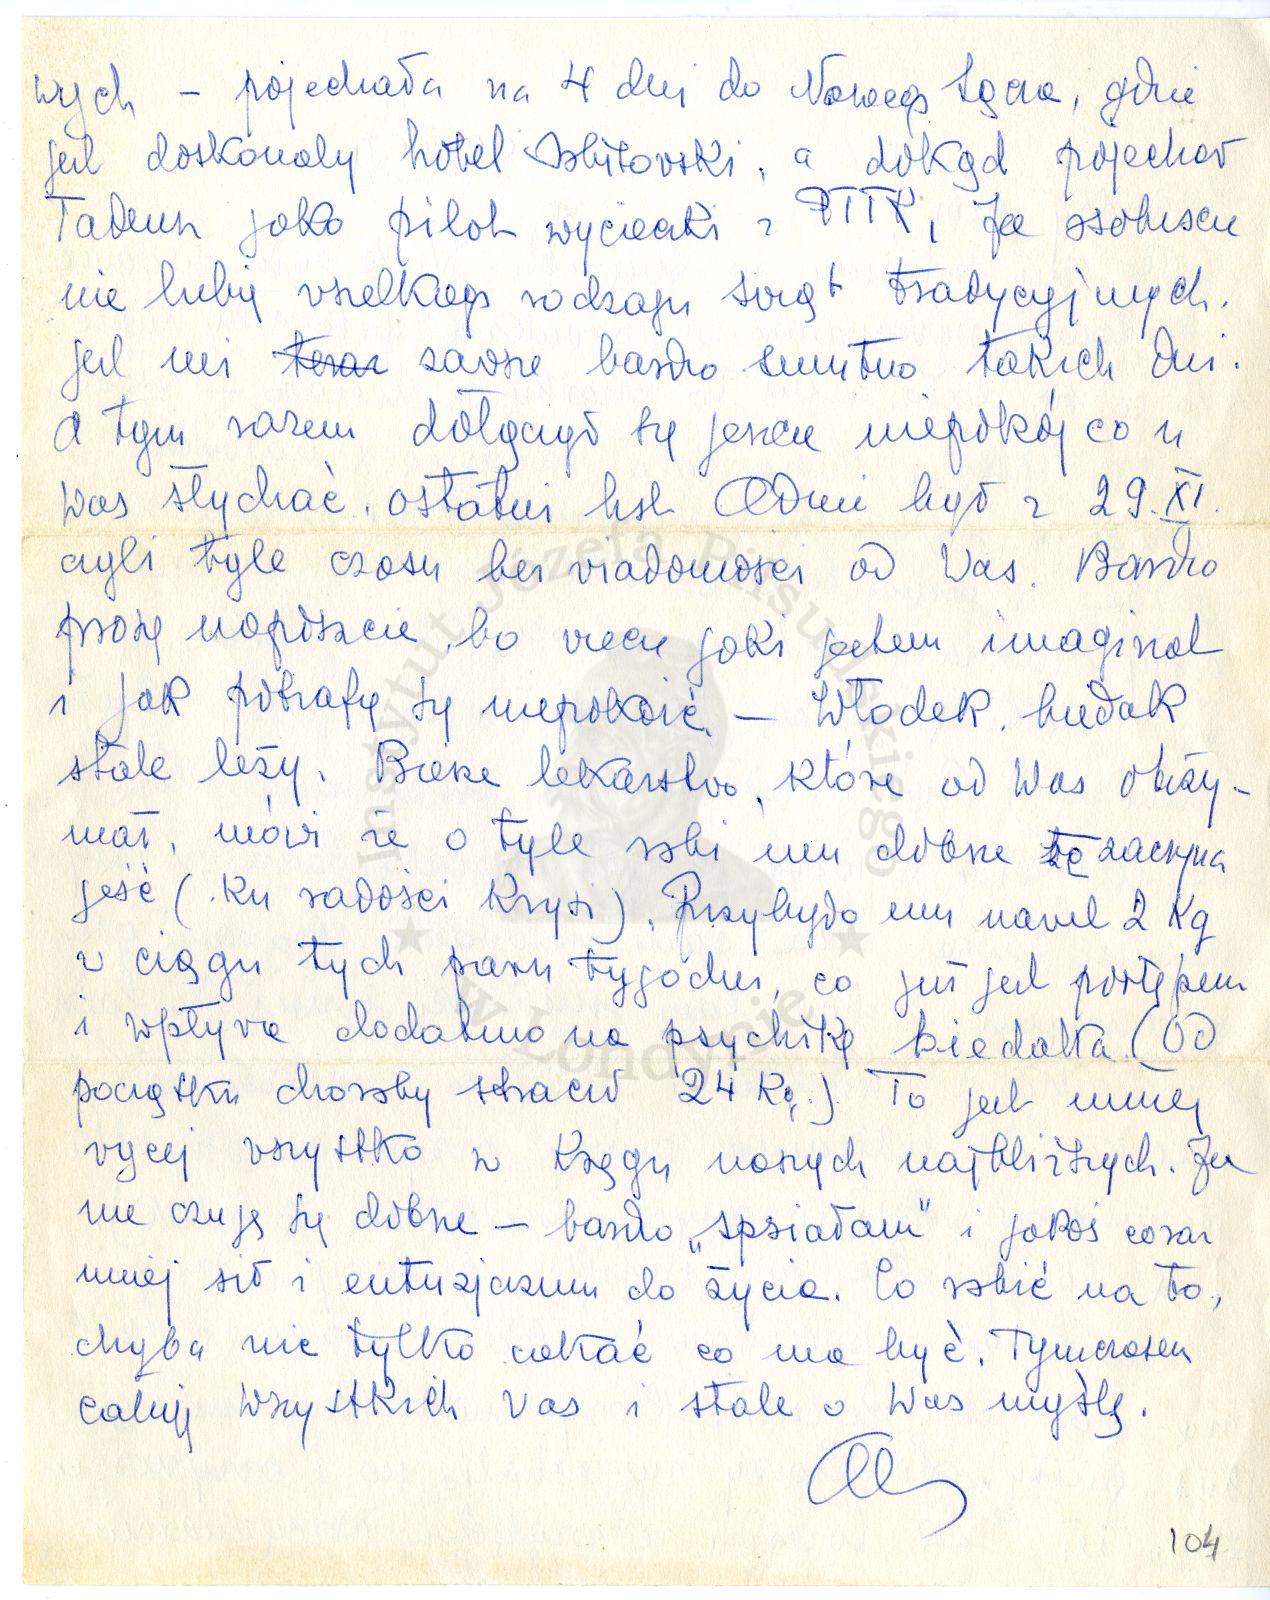 wych – pojechała na 4 dni do Nowego Sącza, gdzie
jest doskonały hotel Orbisowski, a dokąd pojechał
Tadeusz jako pilot wycieczki z PTTK. Ja osobiście
nie lubię wszelkiego rodzaju świąt tradycyjnych.
jest mi teraz zawsze bardzo smutno takich dni.
A tym razem dołączył się jeszcze niepokój co u
Was słychać. Ostatni list był z 29.XI.
czyli tyle czasu bez wiadomości od Was. Bardzo
proszę napiszcie, bo wiecie jaki jestem imaginat
i jak potrafię się niepokoić. – Włodek, biedak
stale leży. Bierze lekarstwo, które od Was otrzy-
mał, mówi że o tyle robi mu dobrze że zaczyna
jeść (ku radości Krysi). Przybyło mu nawet 2 kg
w ciągu tych paru tygodni, co już jest postępem
i wpływa dodatnio na psychikę biedaka. (Od
początku choroby stracił 24 kg.) To jest mniej
więcej wszystko z kręgu naszych najbliższych. Ja
nie czuję się dobrze – bardzo „spsiałam" i jakoś coraz
mniej sił i entuzjazmu do życia. Co robić na to,
chyba nic tylko czekać co ma być. Tymczasem
całuję wszystkich Was i stale o Was myślę.
104
Instytut Józefa Piłsudskiego
w Londynie